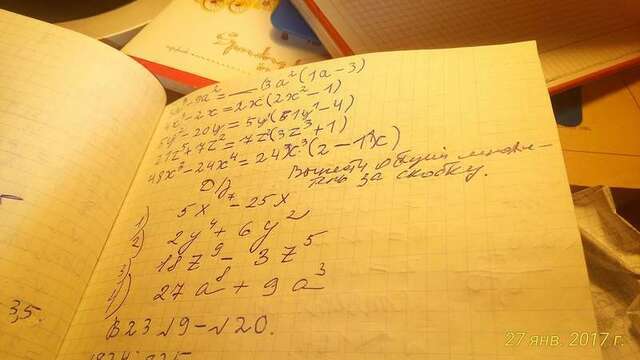 - 9a² = 3a²(1a-3)
- 2x = 2x(2x²-1)
5y⁵ - 20y = 5y(1y⁴-4)
21z⁵ + 7z² = 7z²(3z³+1)
48x³ - 24x⁴ = 24x³(2-1x)
Д/з Вынести общий множи-
тель за скобку.
1) 5x⁷ - 25x
2) 2y⁴ + 6y²
3) 18z⁹ - 3z⁵
4) 27a⁸ + 9a³
§ 23 √9-√20.
3,5.
27 янв. 2017 г.